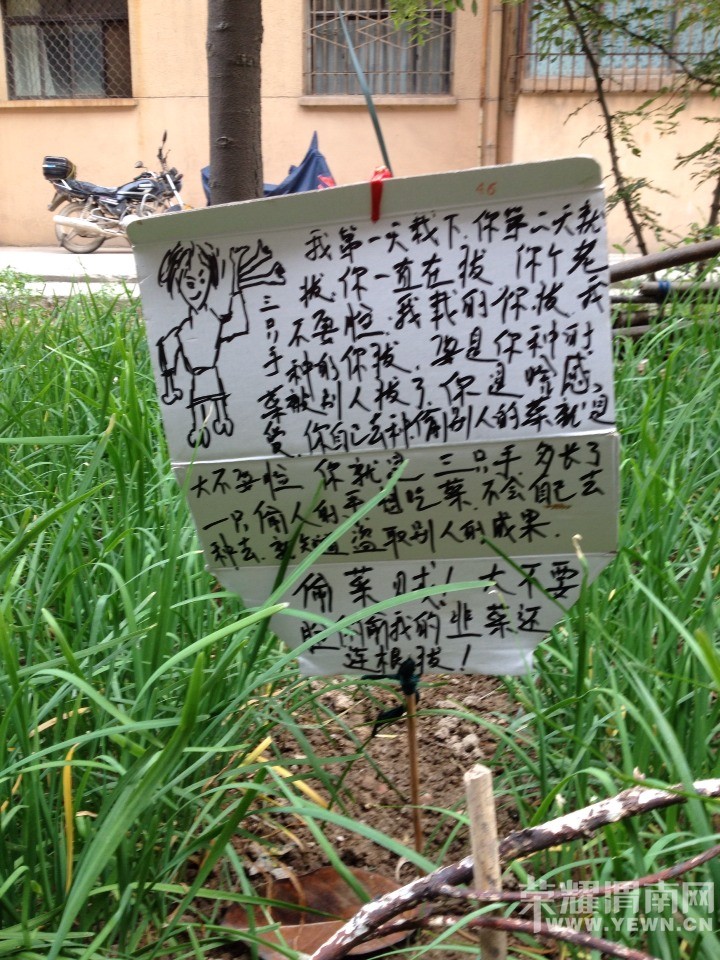 46
我第一天栽下.你第二天就
拔.你一直在拔 你个老
不要脸.我栽的你拔.我
种的你拔.要是你种的
菜被别人拔了.你是啥感
觉.你自己去种.偷别人的菜就是
三只手
大不要脸 你就是 三只手.多长了
一只偷人的手 想吃菜.不会自己去
种去.就知道盗取别人的成果.
偷菜贼！大不要
脸.偷我的韭菜还
连根拔！
荣耀渭南网
WWW.YEWN.CN